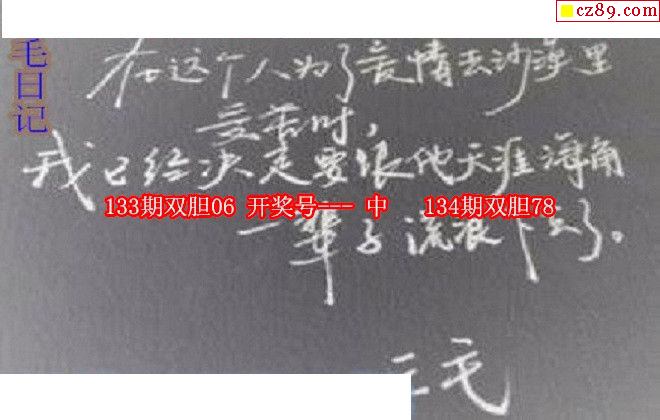 cz89.com
毛日记
在这个人为了爱情去沙漠里
受苦时，
我已经决定要跟他天涯海角
133期双胆06 开奖号--- 中 134期双胆78
一辈子流浪下去了。
三毛